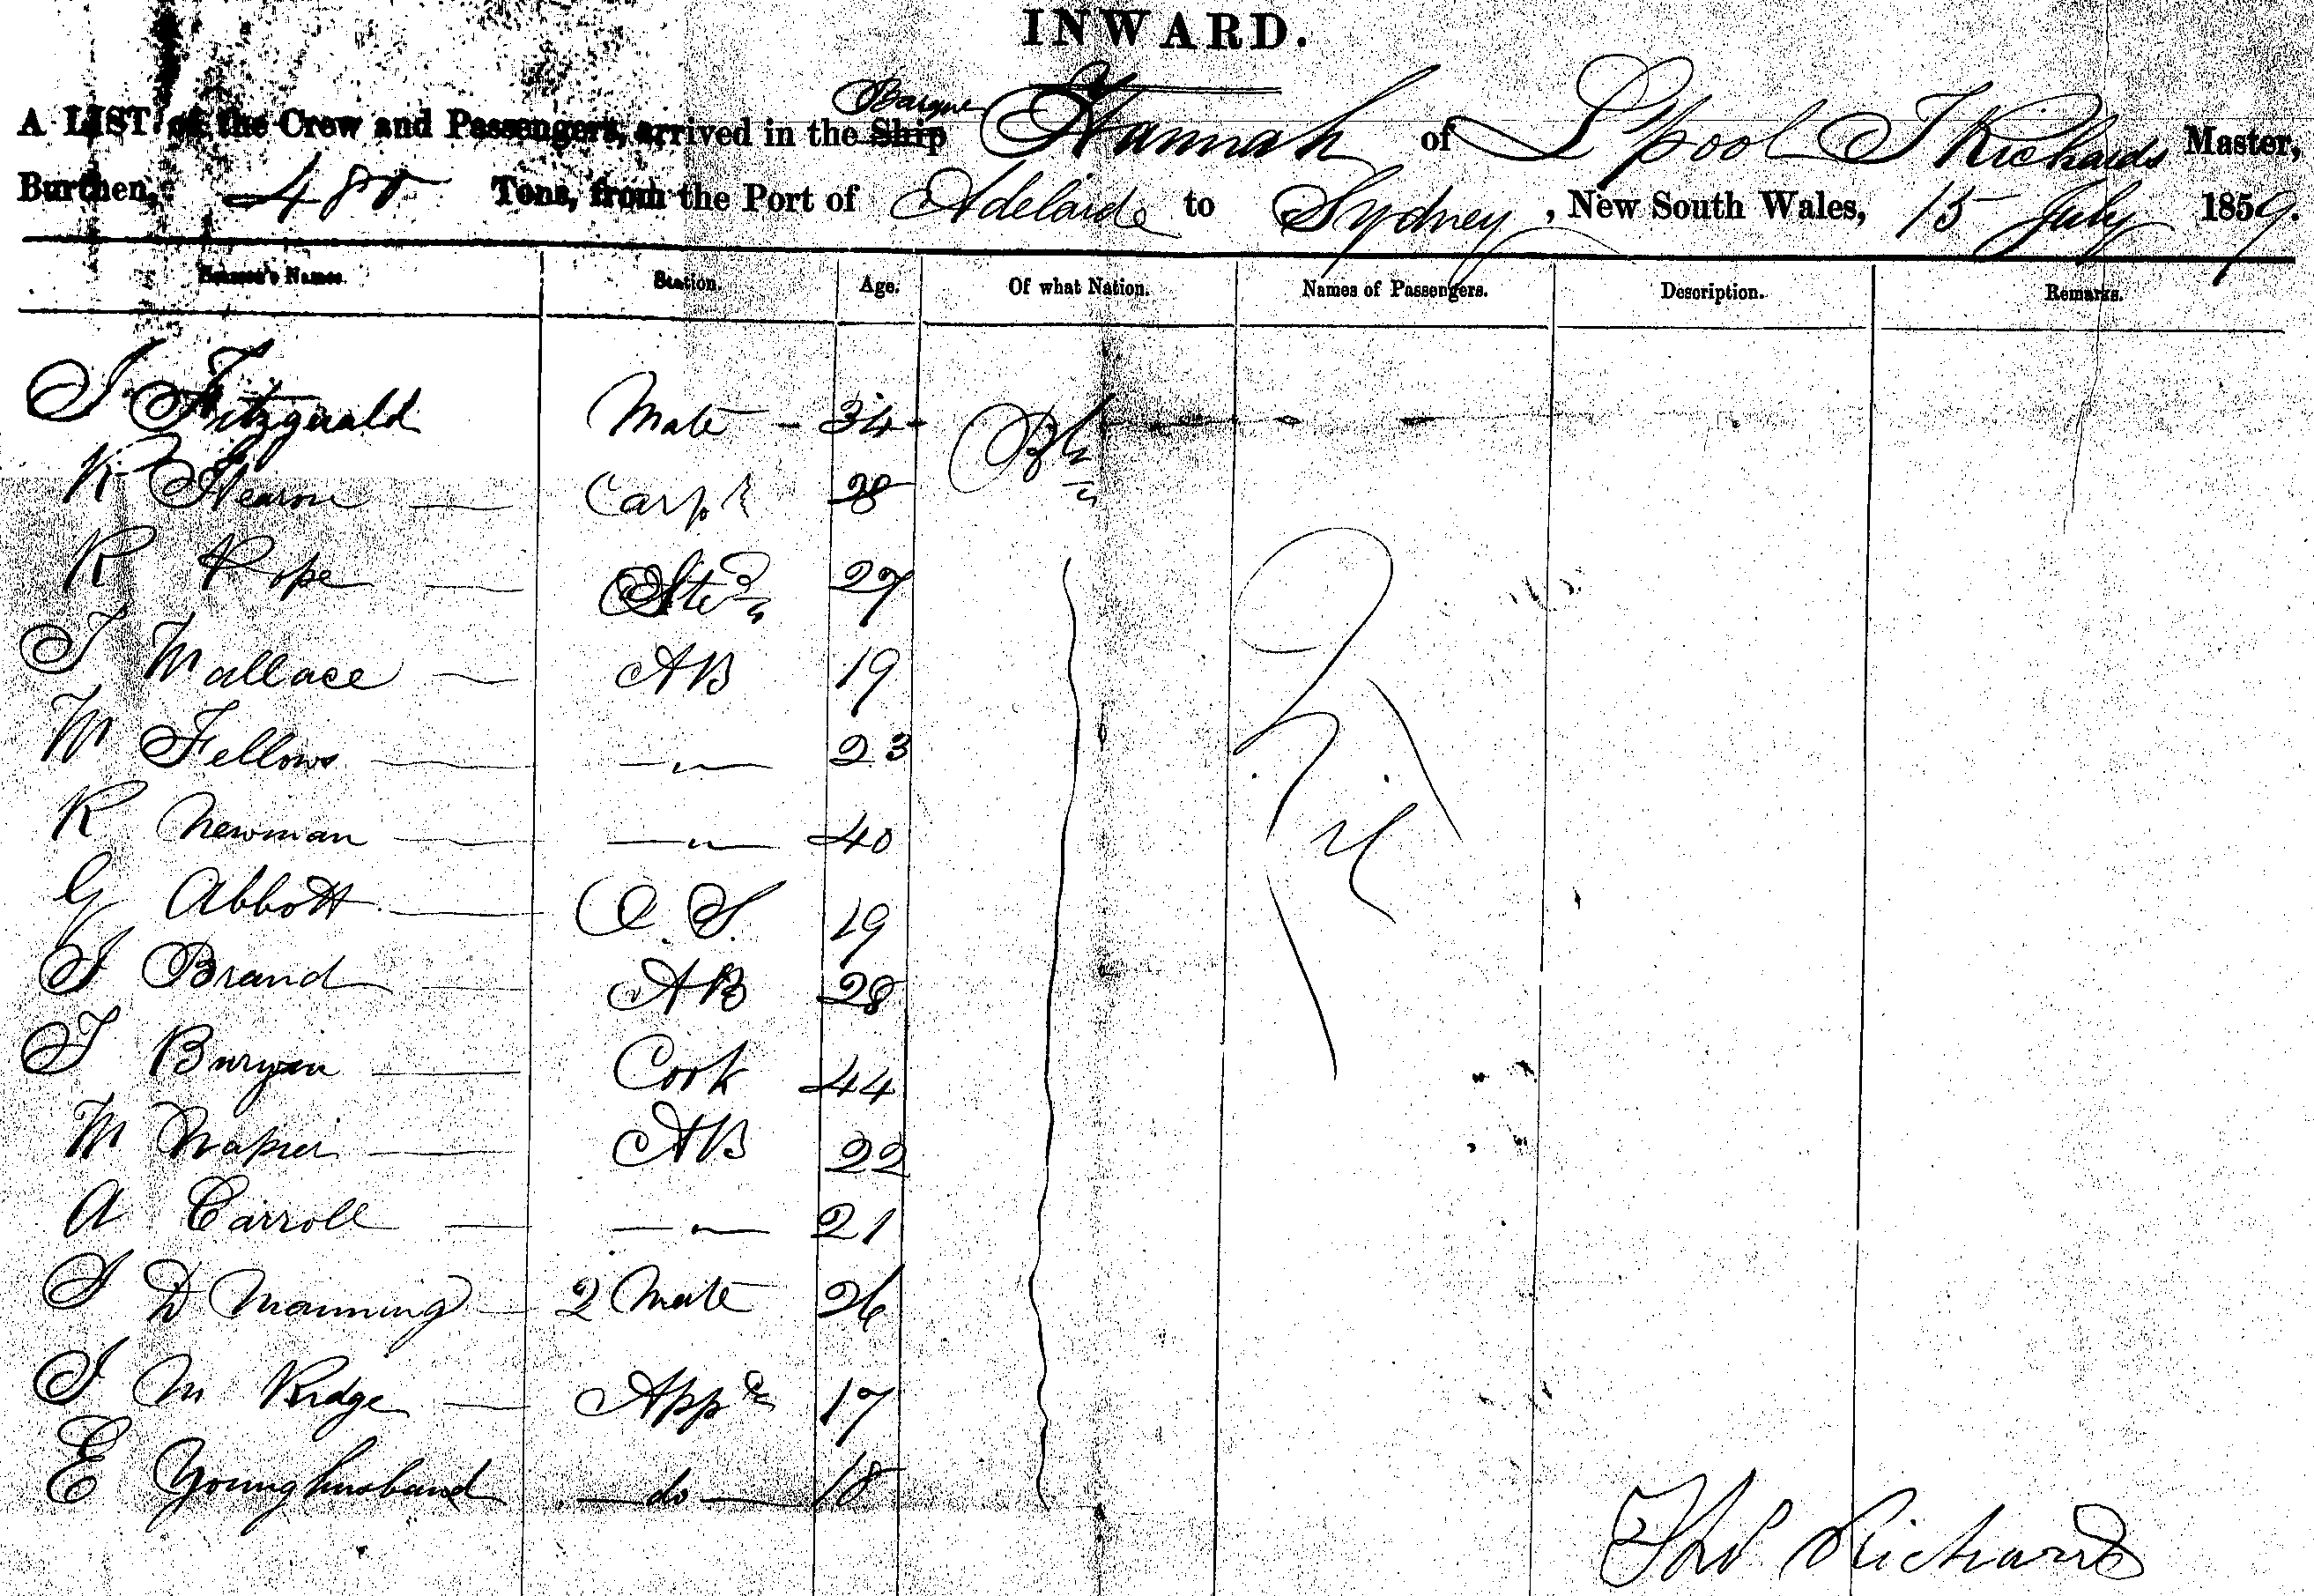 INWARD.
A LIST of the Crew and Passengers, arrived in the Ship Barque Hannah of Lpool T Richards Master,
Burthen, 480 Tons, from the Port of Adelaide to Sydney, New South Wales, 15 July 1859.
Seamen's Names. Station. Age. Of what Nation. Names of Passengers. Description. Remarks.
J Fitzgerald Mate - 34 -
R Hearn Carpr 28
R Pope Stewd 27
T Wallace AB 19
W Fellows — " — 23
R Newman — " — 40
G Abbott O.S. 19
J Brand AB 28
T Cook 44
W Napier AB 22
A Carroll — " — 21
J D Manning 2 Mate 26
J M Ridge Appce 17
E Younghusband — do — 18
Nil
Thos Richards